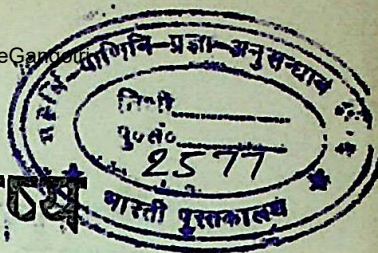 eGangotri
पाणिनि-प्रज्ञा-अनुसन्धान
तिथी
पु०सं०
2577
भारती पुस्तकालय